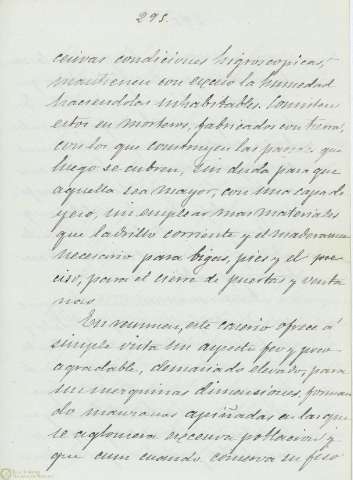 295.
cesivas condiciones higroscopicas,
mantienen con exceso la humedad
haciendolas inhabitables. Consisten
estos en morteros, fabricados con tierra,
con los que construyen las paredes que
luego se cubren, sin duda para que
aquella sea mayor, con una capa de
yeso, sin emplear mas materiales
que ladrillo corriente y el maderamen
necesario para bigas, pies y el pre
ciso, para el cierre de puertas y venta
nas
En resumen, este caserio ofrece á
simple vista un aspecto feo y poco
agradable, demasiado elevado, para
sus mezquinas dimensiones, forman
do manzanas apiñadas a las que
se aglomera excesiva poblacion y
que aun cuando conserva su piso